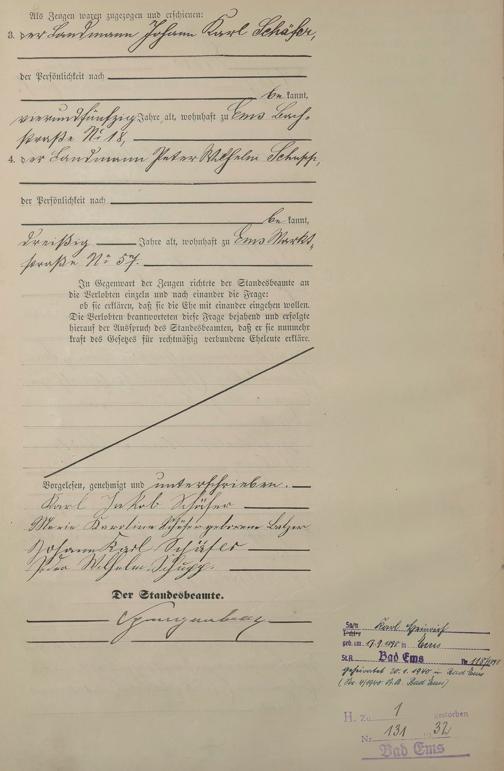 Als Zeugen waren zugezogen und erschienen:
3. der Landmann Johann Karl Schäfer,
der Persönlichkeit nach
be kannt,
vierundfünfzig Jahre alt, wohnhaft zu Ems Bach-
straße No 18,
4. der Landmann Peter Wilhelm Schupp,
der Persönlichkeit nach
be kannt,
dreißig Jahre alt, wohnhaft zu Ems Markt-
straße No 57.
In Gegenwart der Zeugen richtete der Standesbeamte an
die Verlobten einzeln und nach einander die Frage:
ob sie erklären, daß sie die Ehe mit einander eingehen wollen.
Die Verlobten beantworteten diese Frage bejahend und erfolgte
hierauf der Ausspruch des Standesbeamten, daß er sie nunmehr
kraft des Gesetzes für rechtmäßig verbundene Eheleute erkläre.
Vorgelesen, genehmigt und unterschrieben.
Karl Jakob Schäfer
Marie Karoline Schäfer geborene Balzer
Johann Karl Schäfer
Peter Wilhelm Schupp.
Der Standesbeamte.
Spangenberg
Sohn Karl Heinrich
geb. am 17.9.1898 in Ems
St.A. Bad Ems Nr.
geheiratet 20.1.1940 in Bad Ems
(Nr. 4/1940 St.A. Bad Ems)
H. Zu 1 gestorben
Nr. 131 1932
Bad Ems